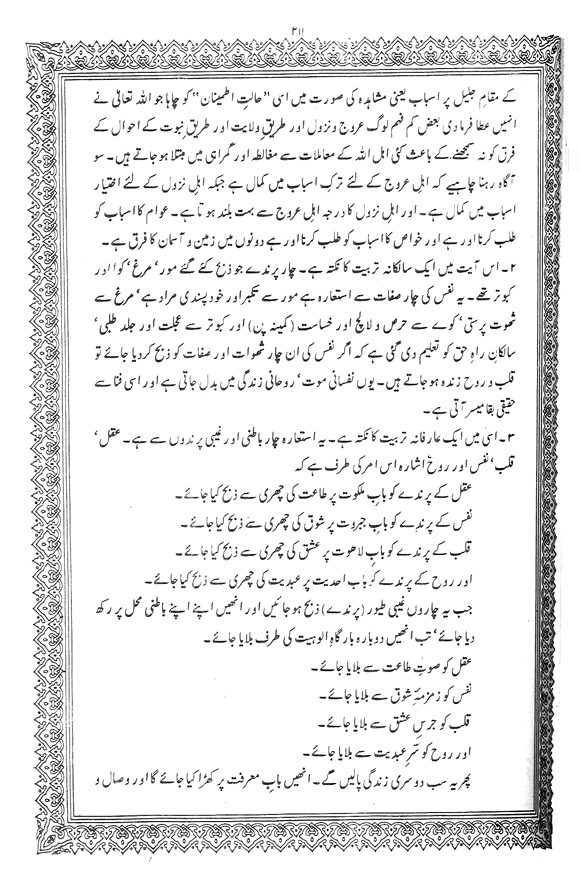 ۳۱۱
کے مقامِ جلیل پر اسباب یعنی مشاہدہ کی صورت میں اسی ”حالتِ اطمینان“ کو چاہا جو اللہ تعالیٰ نے
انہیں عطا فرما دی بعض کم فہم لوگ عروج و نزول اور طریقِ ولایت اور طریقِ نبوت کے احوال کے
فرق کو نہ سمجھنے کے باعث کئی اہل اللہ کے معاملات سے مغالطہ اور گمراہی میں مبتلا ہو جاتے ہیں۔ سو
آگاہ رہنا چاہیے کہ اہلِ عروج کے لئے ترکِ اسباب میں کمال ہے جبکہ اہلِ نزول کے لئے اختیارِ
اسباب میں کمال ہے۔ اور اہلِ نزول کا درجہ اہلِ عروج سے بہت بلند ہوتا ہے۔ عوام کا اسباب کو
طلب کرنا اور ہے اور خواص کا اسباب کو طلب کرنا اور ہے دونوں میں زمین و آسمان کا فرق ہے۔
۲۔ اس آیت میں ایک سالکانہ تربیت کا نکتہ ہے۔ چار پرندے جو ذبح کئے گئے مور‘ مرغ‘ کوا اور
کبوتر تھے۔ یہ نفس کی چار صفات سے استعارہ ہے مور سے تکبر اور خود پسندی مراد ہے‘ مرغ سے
شھوت پرستی‘ کوے سے حرص و لالچ اور خساست (کمینہ پن) اور کبوتر سے عجلت اور جلد طلبی‘
سالکانِ راہِ حق کو تعلیم دی گئی ہے کہ اگر نفس کی ان چار شھوات اور صفات کو ذبح کر دیا جائے تو
قلب و روح زندہ ہو جاتے ہیں۔ یوں نفسانی موت‘ روحانی زندگی میں بدل جاتی ہے اور اسی فنا سے
حقیقی بقا میسر آتی ہے۔
۳۔ اسی میں ایک عارفانہ تربیت کا نکتہ ہے۔ یہ استعارہ چار باطنی اور غیبی پرندوں سے ہے۔ عقل‘
قلب‘ نفس اور روح‘ اشارہ اس امر کی طرف ہے کہ
عقل کے پرندے کو بابِ ملکوت پر طاعت کی چھری سے ذبح کیا جائے۔
نفس کے پرندے کو بابِ جبروت پر شوق کی چھری سے ذبح کیا جائے۔
قلب کے پرندے کو بابِ لاھوت پر عشق کی چھری سے ذبح کیا جائے۔
اور روح کے پرندے کو باب احدیت پر عبدیت کی چھری سے ذبح کیا جائے۔
جب یہ چاروں غیبی طیور (پرندے) ذبح ہو جائیں اور انھیں اپنے اپنے باطنی محل پر رکھ
دیا جائے‘ تب انھیں دوبارہ بارگاہِ الوہیت کی طرف بلایا جائے۔
عقل کو صوتِ طاعت سے بلایا جائے۔
نفس کو زمزمۂ شوق سے بلایا جائے۔
قلب کو جرسِ عشق سے بلایا جائے۔
اور روح کو سّرِ عبدیت سے بلایا جائے۔
پھر یہ سب دوسری زندگی پالیں گے۔ انھیں بابِ معرفت پر کھڑا کیا جائے گا اور وصال و